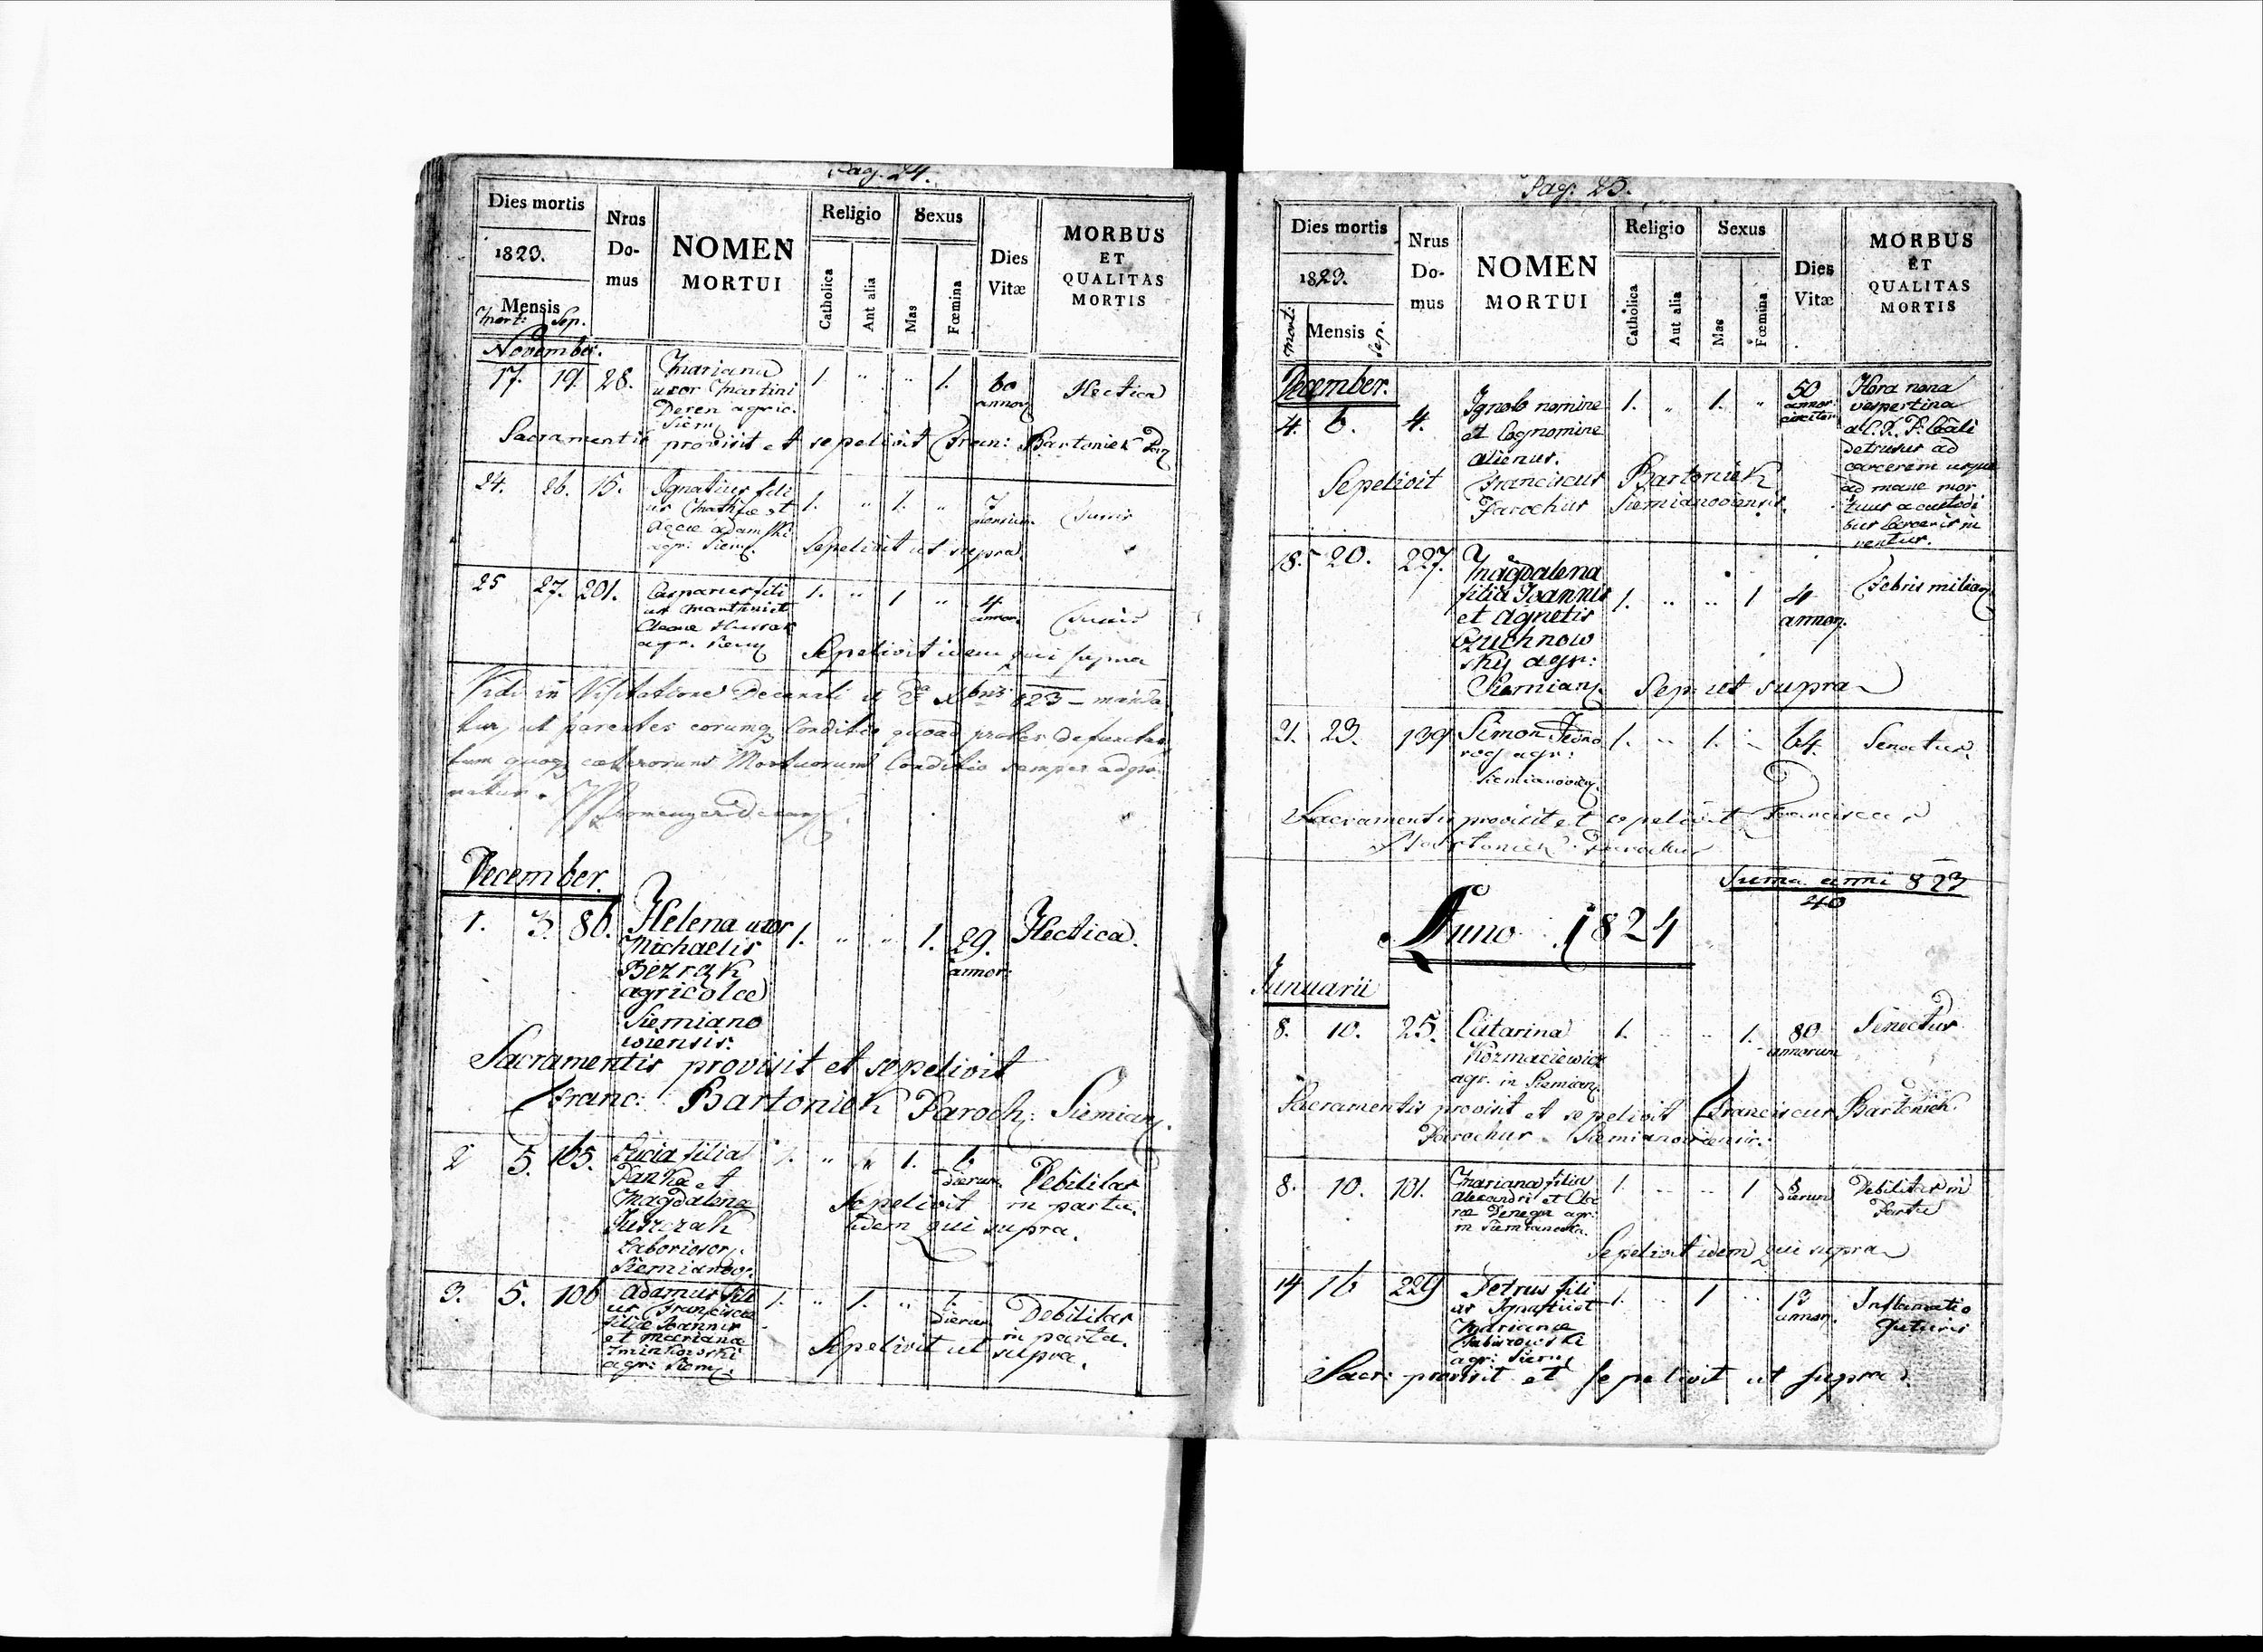 Pag. 24.
Dies mortis
1823.
Mensis
Mort: Sep.
Nrus
Do-
mus
NOMEN
MORTUI
Religio
Catholica
Aut alia
Sexus
Mas
Fœmina
Dies
Vitæ
MORBUS
ET
QUALITAS
MORTIS
November.
17. 19. 28. Mariana 1. " " 1. 60 Hectica
uxor Martini annor
Deren agric.
Siem
Sacramentis provisit et sepelivit Fran: Bartoniek
24. 26. 15. Ignatius fili 1. " 1. " 7
us Mathæ et mensium
agr: Siem. Sepelivit ut supra.
25 27. 201. 1. " 1 " 4
annor.
agr. Siem Sepelivit idem qui supra
Vidi in Visitatione Decanali 823 manda
tur, ut parentes eorumq conditio quoad proles defunctas
tum quoq cæterorum Mortuorum Conditio semper adgno
natur.
December.
1. 3. 86. Helena uxor 1. " " 1. 29. Hectica.
Michaelis annor.
Biezrąk
agricolæ
Siemiano
wiensis.
Sacramentis provisit et sepelivit
Franc: Bartoniek Paroch: Siemian.
2 5. 165. Lucia filia 1. " " 1. dierum Debilitas
et in partu.
Magdalena Sepelivit
Juszczak idem qui supra.
Laborioсor.
Siemianow.
3. 5. 106 Adamus fili 1. " 1. " 1. Debilitas
us Francisca dierum in partu.
filiæ Joannis
et Mariana Sepelivit ut supra.
agr: Siem.
Pag. 25.
Dies mortis
1823.
Mensis
mort: Sep.
Nrus
Do-
mus
NOMEN
MORTUI
Religio
Catholica
Aut alia
Sexus
Mas
Fœmina
Dies
Vitæ
MORBUS
ET
QUALITAS
MORTIS
December.
4. 6. 4. Ignoto nomine 1. " 1. " 50 Hora nona
et Cognomine annor vespertina
alienus. circiter
detrusus ad
carcerem usque
ad mane mor
tuus a custodi
bus Carceris in
ventus.
Sepelivit Franciscus Bartoniek
Parochus Siemianoviensis.
18. 20. 227. Magdalena 1. " " 1 4 Febris miliar
filia Joannis annor.
et Agnetis
Czuchnow
skij agr:
Siemian. Sep. ut supra
21. 23. 139 Simon 1. " 1. " 64. Senectus.
agr:
Siemianovien
Sacramentis provisit et sepelivit Franciscus
Bartoniek Parochus
Suma anni 823
40
Anno 1824
Januarii
8. 10. 25. Catarina 1. " 1. 80 Senectus
Kozmaciewicz annorum
agr. in Siemian.
Sacramentis provisit et sepelivit Franciscus Bartoniek
Parochus Siemianoviensis.
8. 10. 131. Mariana filia 1. " " 1 dierum Debilitas in
Alexandri et Cla Partu
ræ agr:
in
Sepelivit idem qui supra
14 16 229 Petrus fili 1. " 1 " 13 Inflamatio
us Ignatii et annor. Guturis
Marianæ
agr: Siem
Sacr: provisit et sepelivit ut supra.